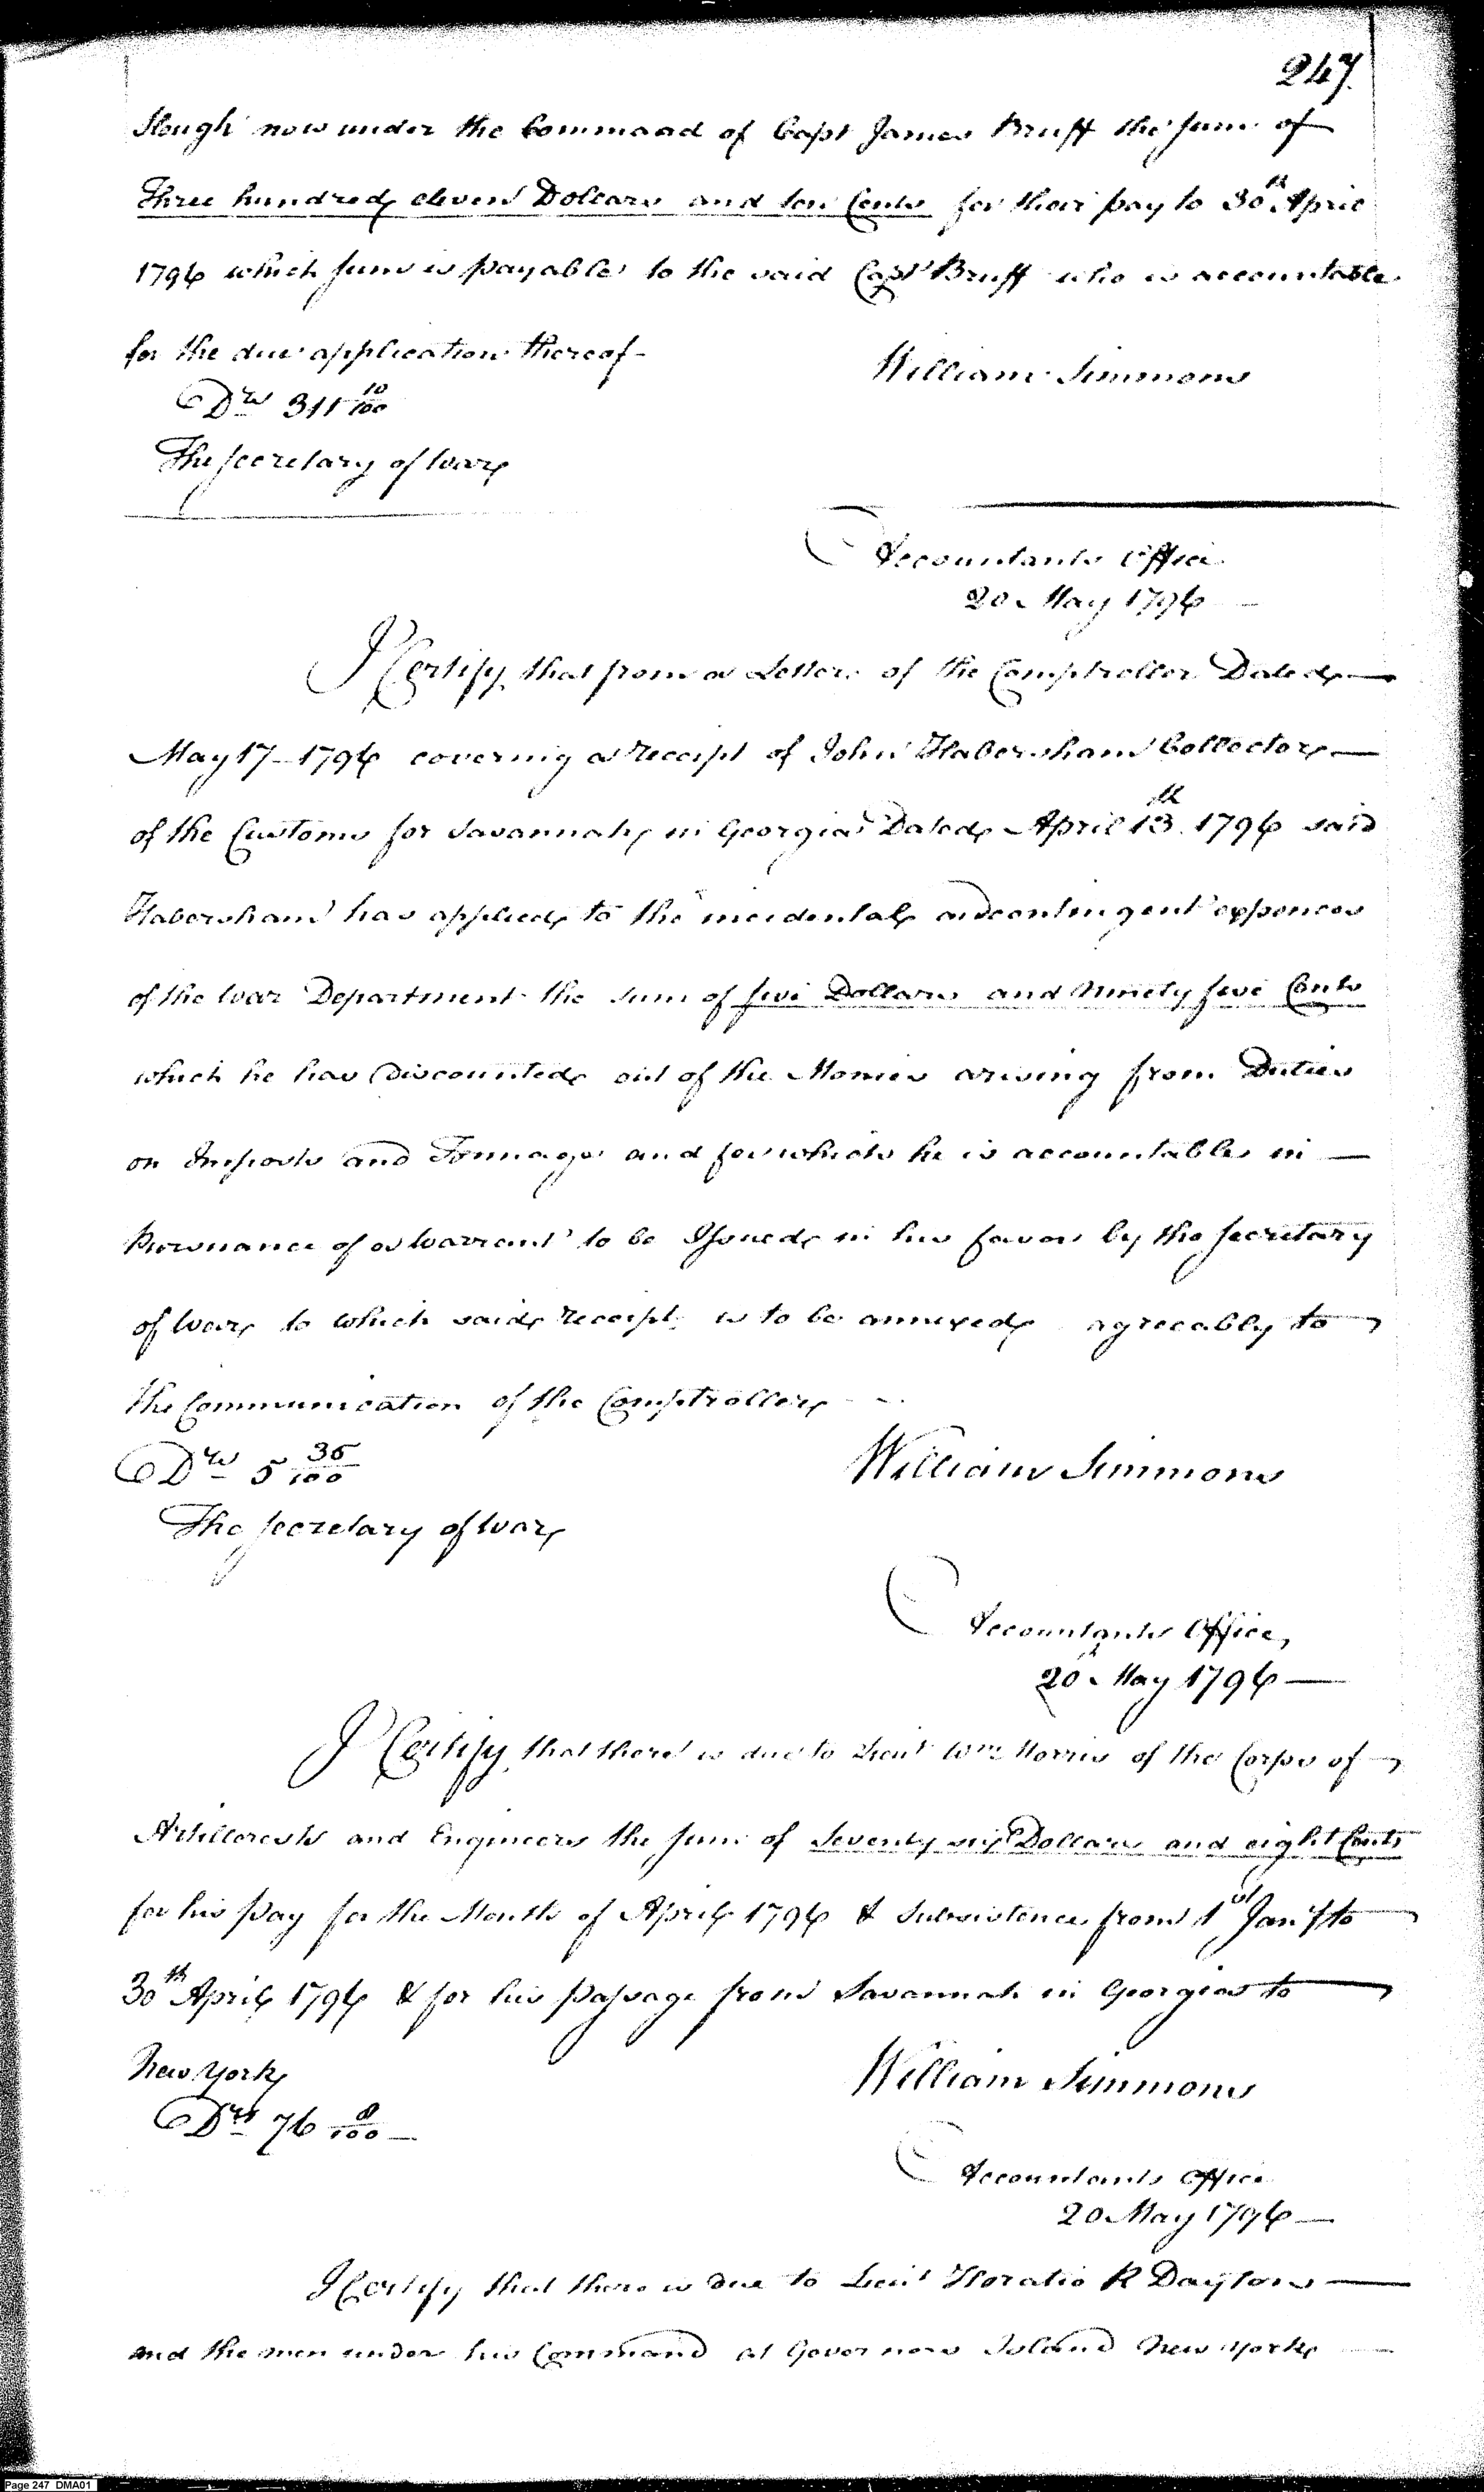 247.
Slough now under the Command of Capt James Bruff the sum of
Three hundred eleven Dollars and ten Cents for their pay to 30th April
1796 which sum is payable to the said Capt Bruff who is accountable
for the due application thereof -
William Simmons
Drs 311 10/100
The Secretary of War
Accountants Office
20 May 1796 -
I Certify that from a Letter of the Comptroller Dated —
May 17 - 1796 covering a receipt of John Habersham Collector —
of the Customs for Savannah in Georgia Dated April 13th 1796 said
Habersham has applied to the incidental and contingent expences
of the War Department the sum of five Dollars and Ninety five Cents
which he has Discounted out of the Monies arising from Duties
on Imposts and Tonnage and for which he is accountable in —
Pursuance of a Warrant to be Issued in his favor by the Secretary
of War to which said receipt is to be annexed agreeably to
the Communication of the Comptroller - -
Drs 5 35/100
William Simmons
The Secretary of War
Accountants Office,
20th May 1796 —
I Certify that there is due to Lieut Wm Morris of the Corps of
Artillerists and Engineers the sum of Seventy six Dollars and eight Cents
for his pay for the Month of April 1796 & Subsistence from 1st Jany to
30th April 1796 & for his passage from Savannah in Georgia to
New York
William Simmons
Drs 76 8/100 —
Accountants Office
20 May 1796 —
I Certify that there is due to Lieut Horatio R Dayton —
and the men under his Command at Governors Island New York —
Page 247 DMA01